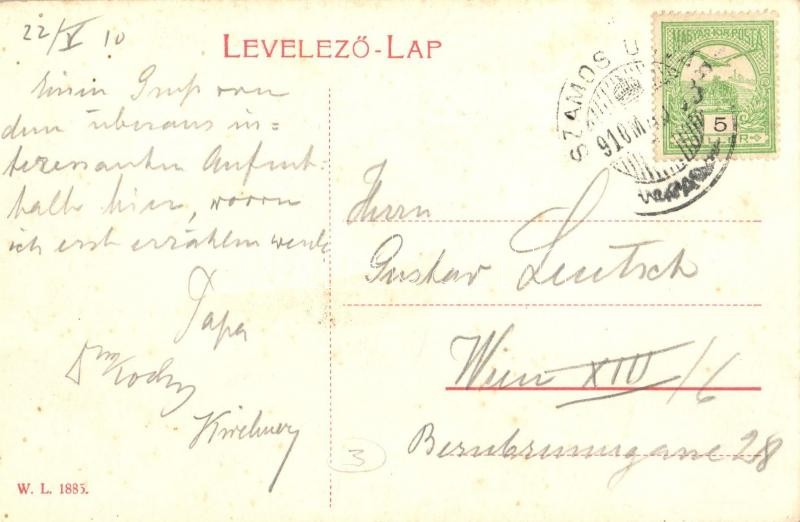 22/V 10
LEVELEZŐ-LAP
Einen Gruß von
dem überaus in=
teressanten Aufent-
halt hier, wovon
ich erst erzählen werde
Papa
Kirchmay
MAGYAR KIR. POSTA
5
SZAMOS U
910 M
Herrn
Gustav Leutsch
Wien XIII/6
28
3
W. L. 1885.